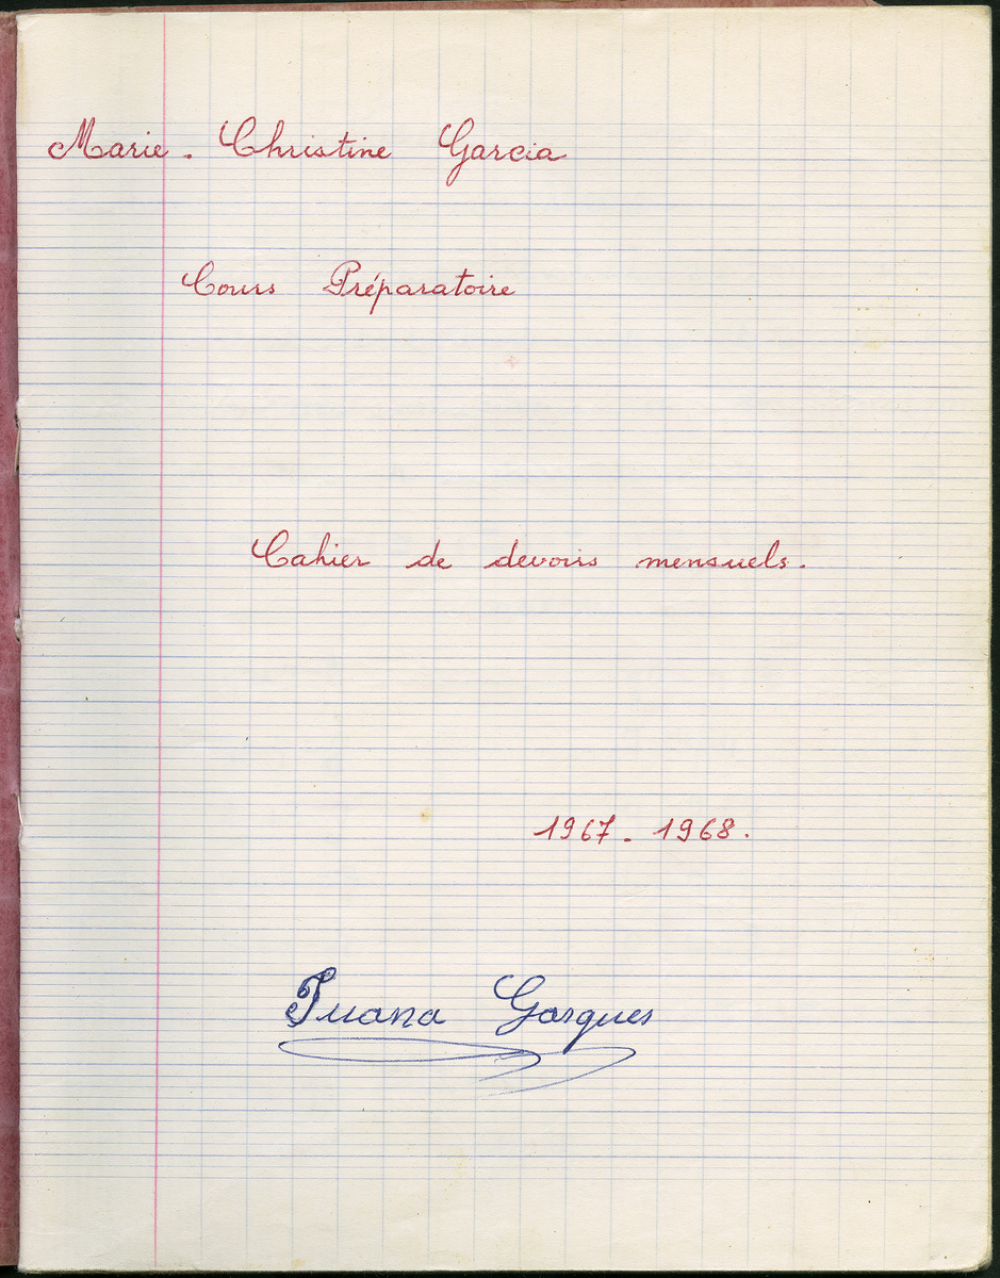 Marie - Christine Garcia
Cours Préparatoire
Cahier de devoirs mensuels.
1967 - 1968.
Juana Gasques